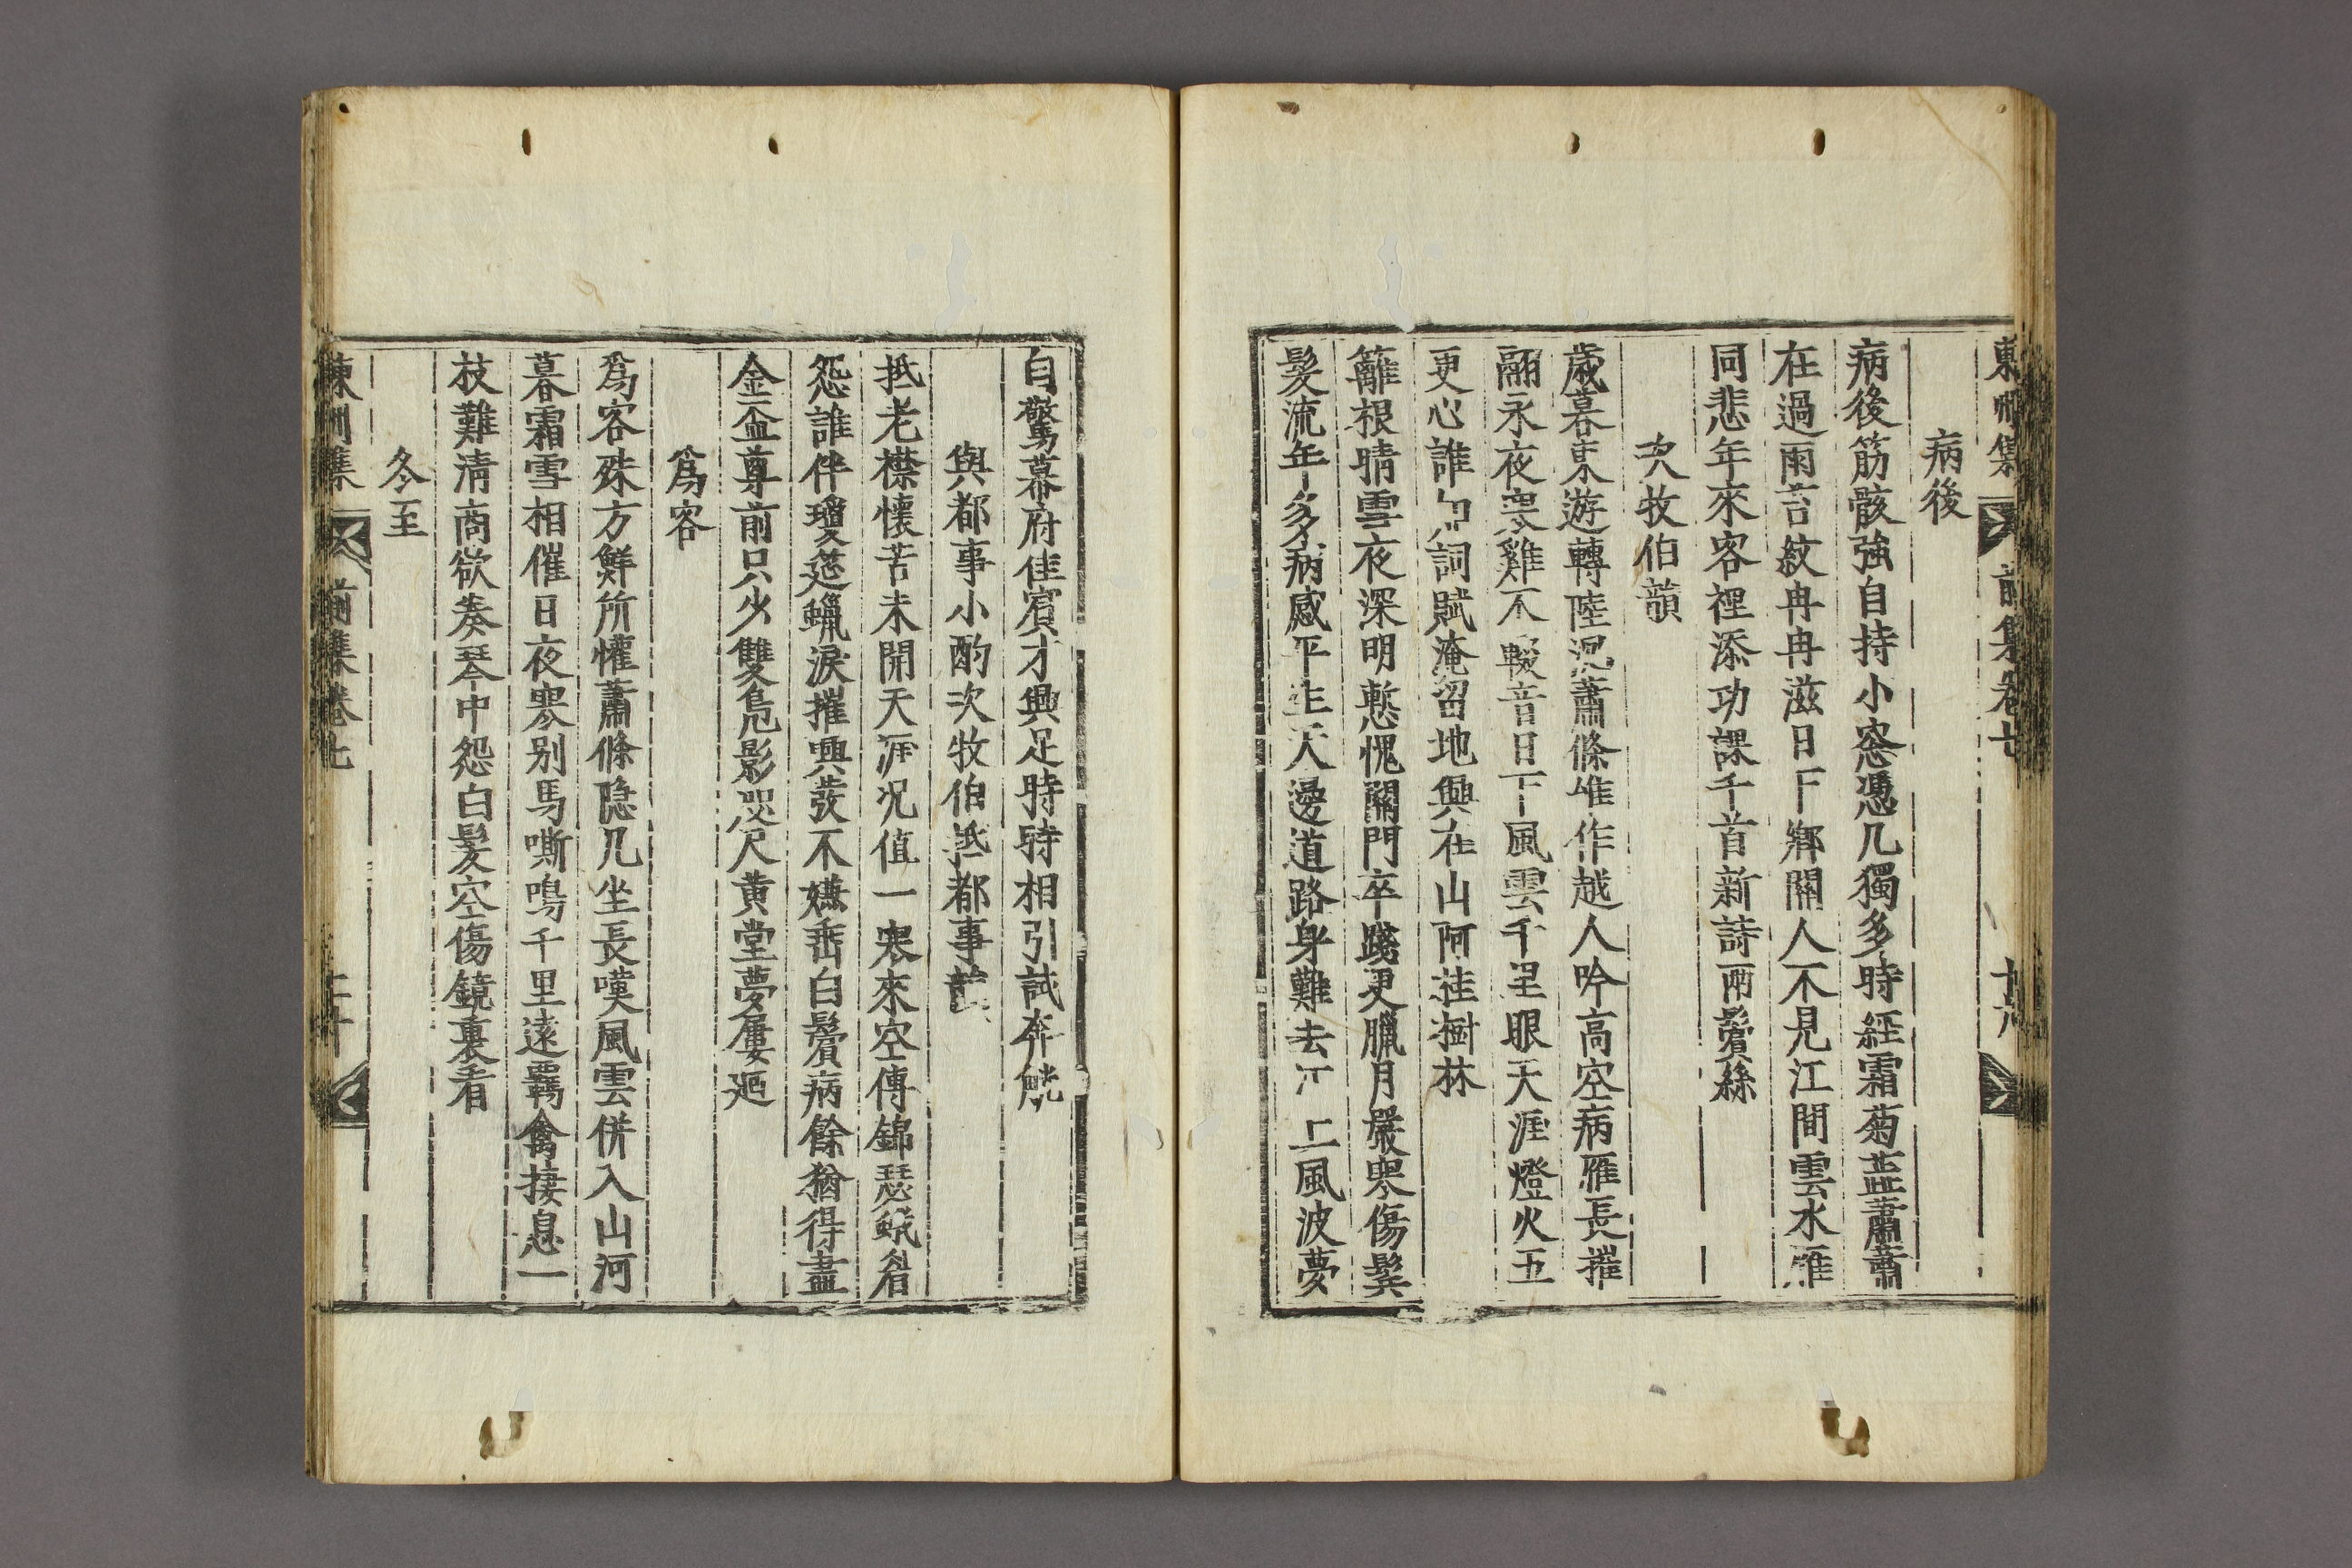 東州集 前集卷七 十九
病後
病後筋骸強自持小窓憑几獨多時經霜菊蘂蕭蕭
在過雨苔紋冉冉滋日下鄕關人不見江間雲水雁
同悲年來客裡添功課千首新詩兩鬢絲
次牧伯韻
歲暮東游轉陸況蕭條唯作越人吟高空病雁長摧
翮永夜寒雞不輟音日下風雲千里眼天涯燈火五
更心誰
詞賦淹留地興在山阿桂樹林
籬根晴雪夜深明慙愧關門卒踐更臘月嚴寒傷鬂
髮流年多病感平生天邊道路身難去江上風波夢
自驚幕府佳賓才興足時時相引試奔觥
與都事小酌次牧伯抵都事韻
抵老襟懷苦未開天涯況値一寒來空傳錦瑟蛾眉
怨誰伴瓊筵蠟淚摧興發不嫌垂白鬢病餘猶得盡
金盃尊前只少雙鳧影咫尺黃堂夢屢廻
爲客
爲客殊方鮮所懽蕭條隱几坐長嘆風雲併入山河
暮霜雪相催日夜寒別馬嘶鳴千里遠羈禽捿息一
枝難淸商欲奏琴中怨白髮空傷鏡裏看
冬至
東州集 前集卷七 二十